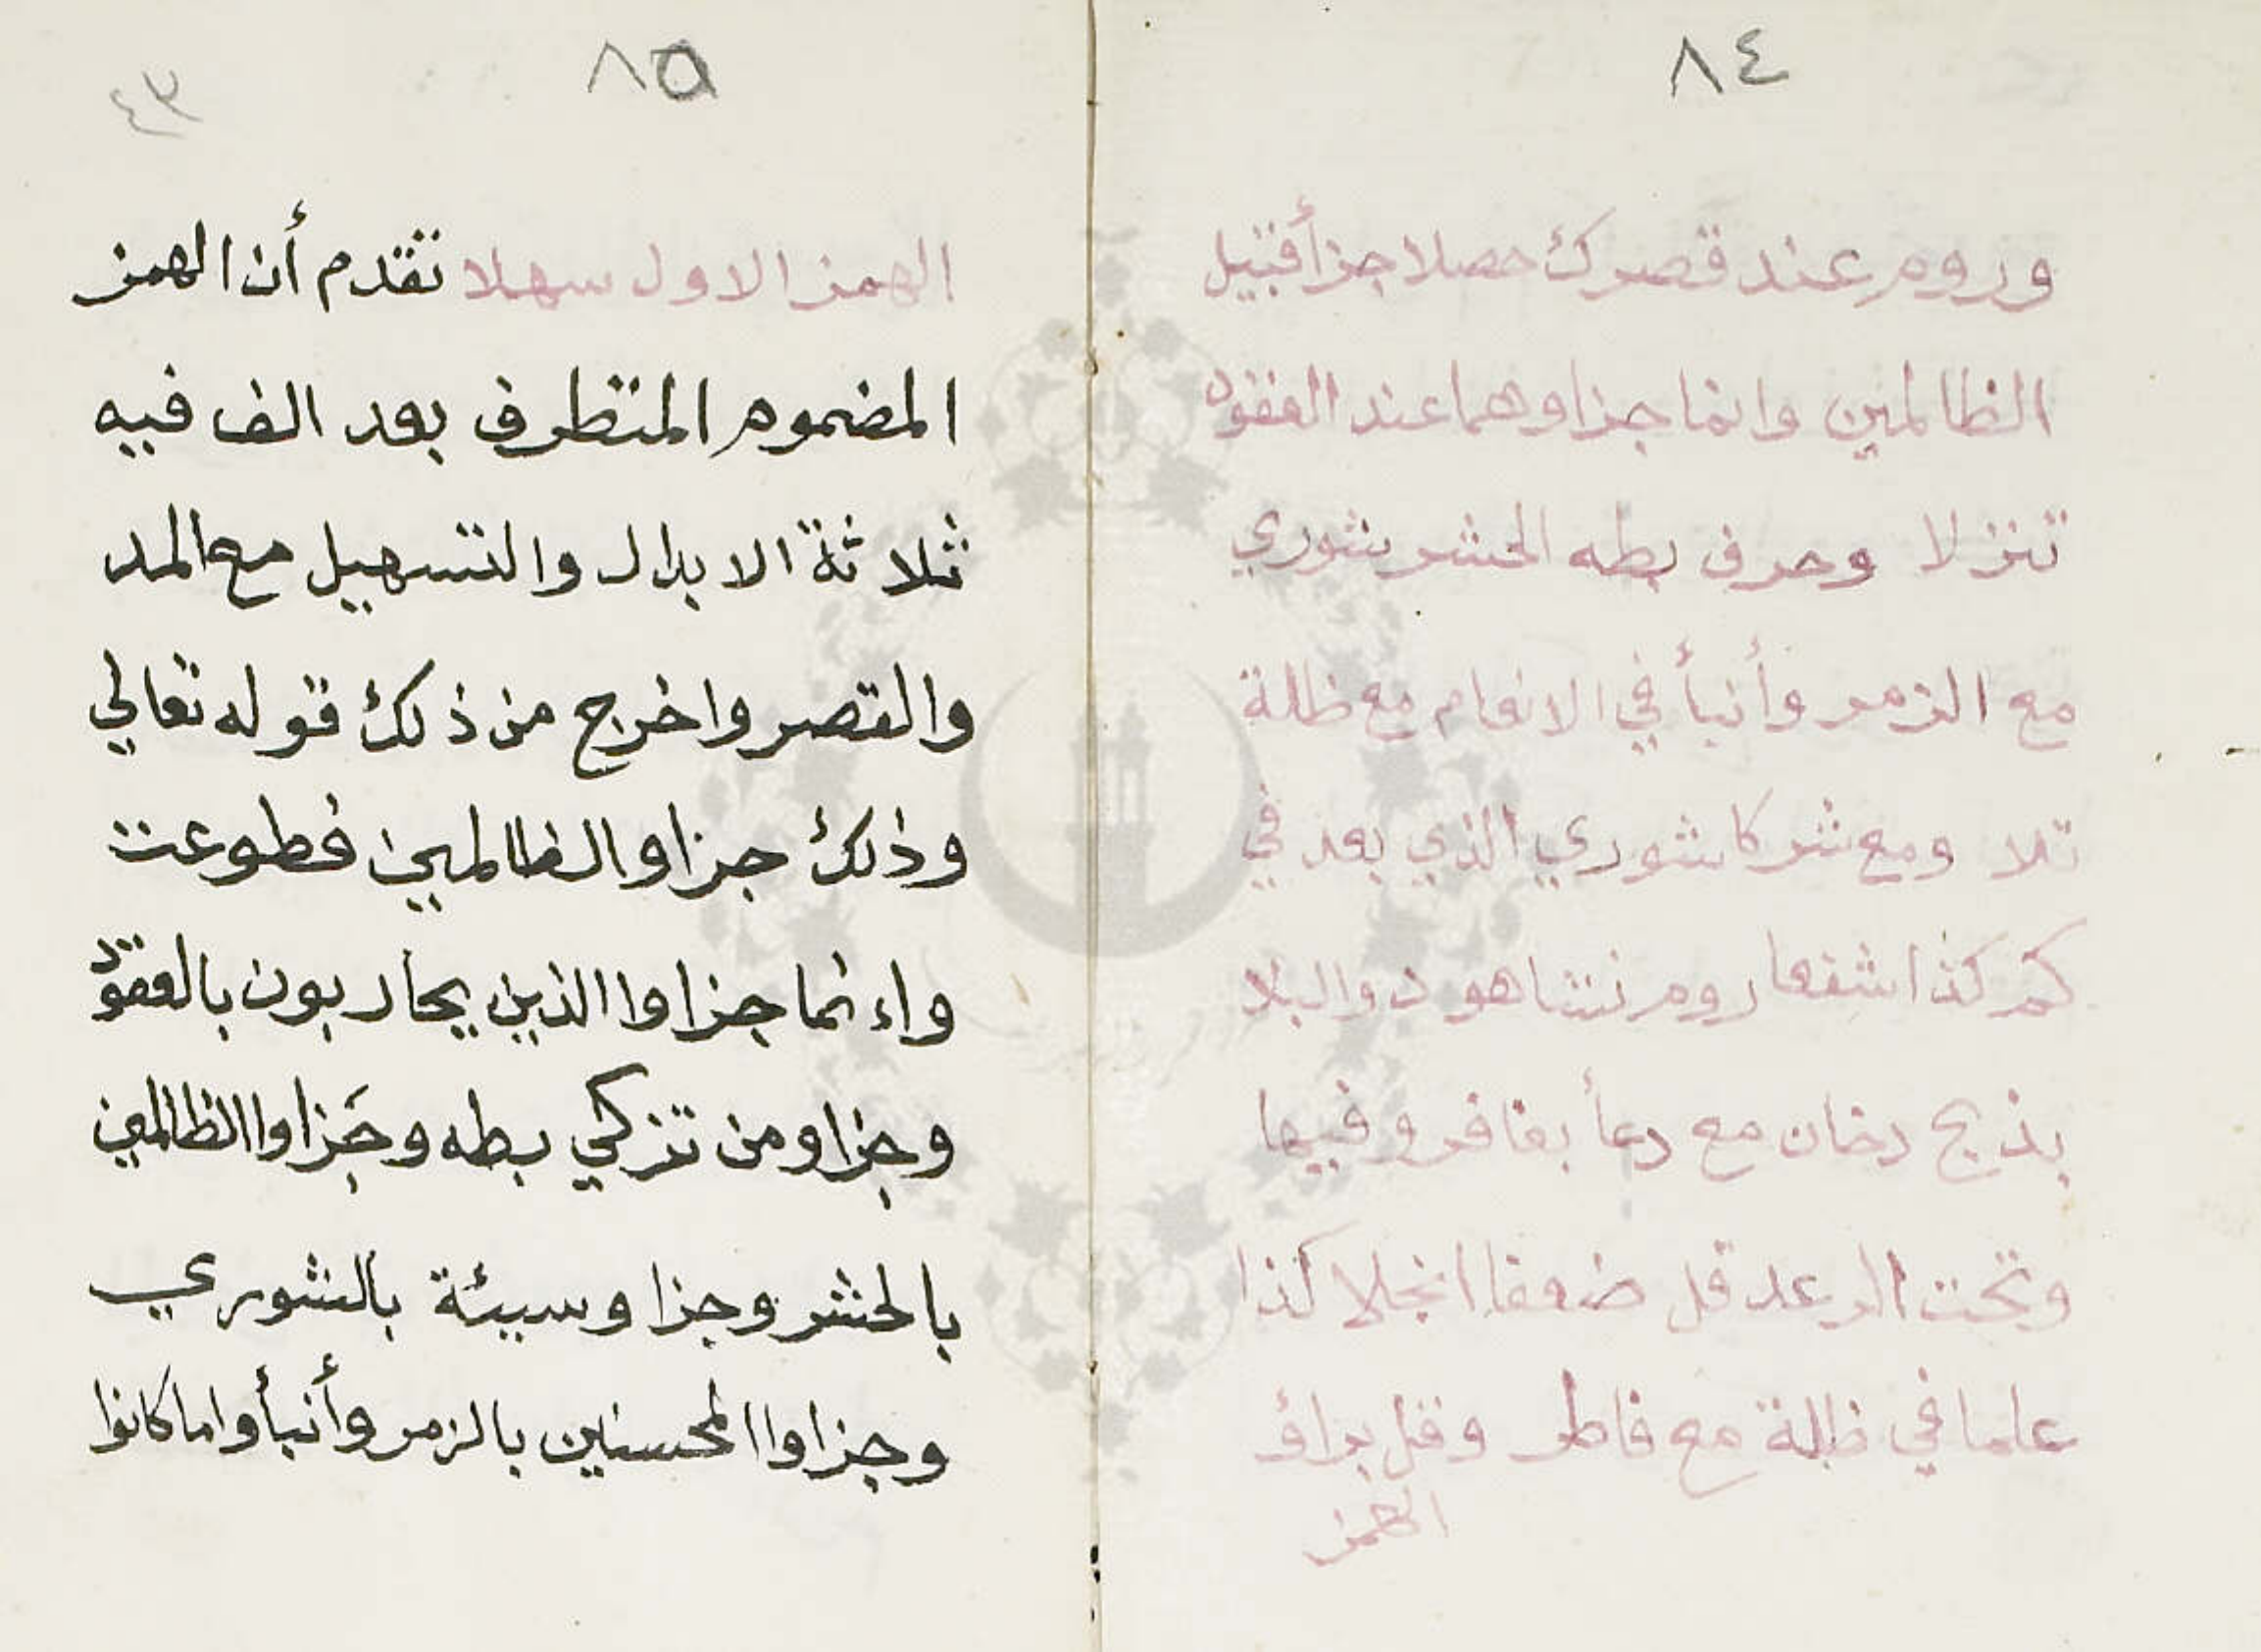 ٨٤
وروم عند قصرك حصلا جزأ قبيل
الظالمين وانما جزاو هما عند العقود
تنزلا وحرف بطه الحشر بشوري
مع الزمر وأنبأ في الانعام مع ظلة
تلا ومع شركا شوري الذي بعد في
كم كذا شفعا روم نشا هود والبلا
بذبح دخان مع دعأ بغافر وفيها
وتحت الرعد قل ضعفا انجلا كذا
علما في ظلة مع فاطر وقل برأؤ
الهمز
٨٥
٤٣
الهمز الاول سهلا تقدم أن الهمز
المضموم المتطرف بعد الف فيه
ثلاثة الابدال والتسهيل مع المد
والقصر واخرج من ذلك قوله تعالي
وذلك جزاو الظالمين فطوعت
واءنما جزاوا الذين يحاربون بالعقود
وجزاو من تزكي بطه وجزاوا الظالمين
بالحشر وجزاو سيئة بالشوري
وجزاوا المحسنين بالزمر وأنبأوا ما كانوا